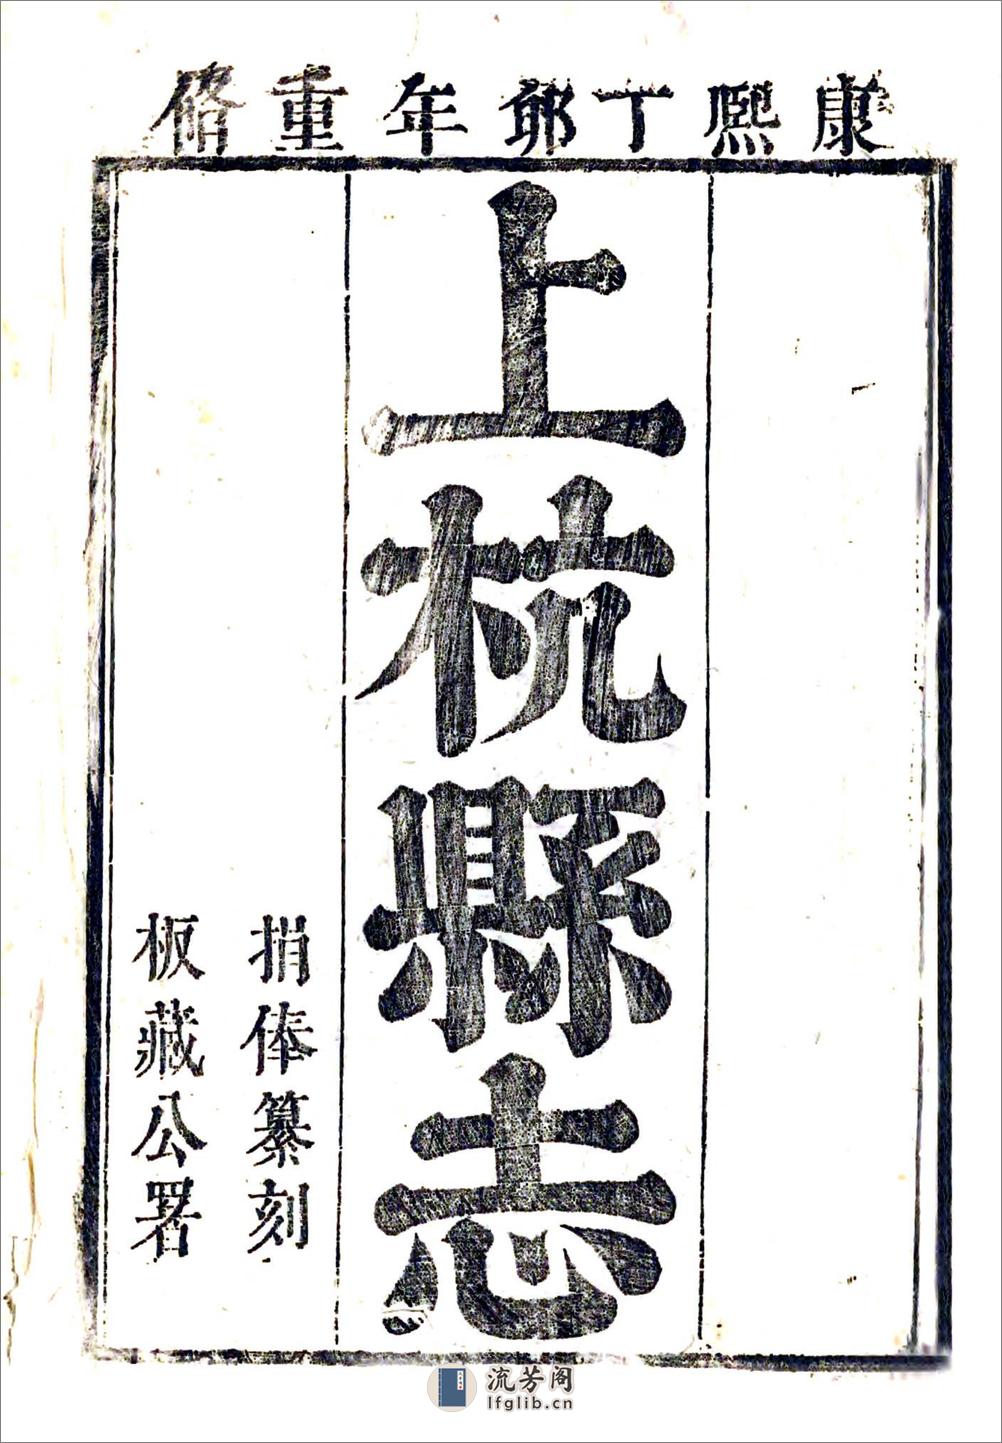 康熙丁卯年重脩
上杭縣志
捐俸纂刻
板藏公署
流芳阁
lfglib.cn